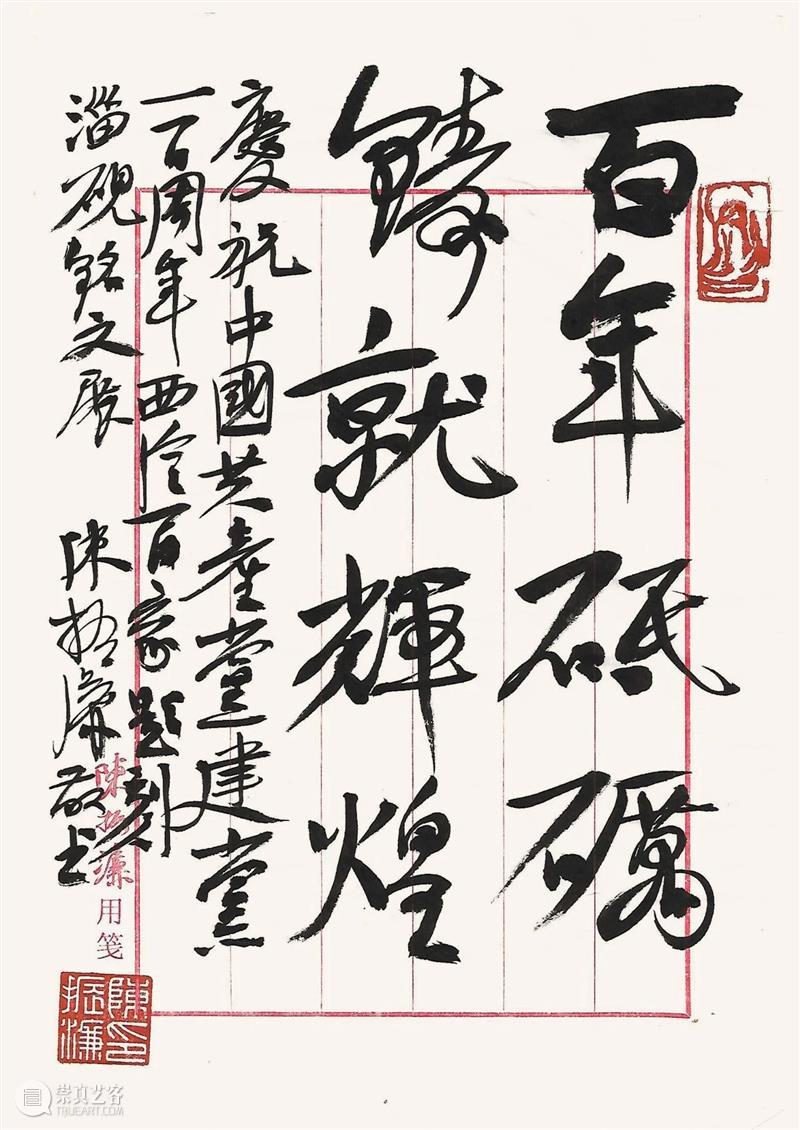 百年砥礪
鑄就輝煌
慶祝中國共產黨建黨
一百周年西泠百家題刻
淄硯銘文展
陳振濂敬书
陳振濂用笺
陳振濂印
崇真艺客
TRUEART.COM